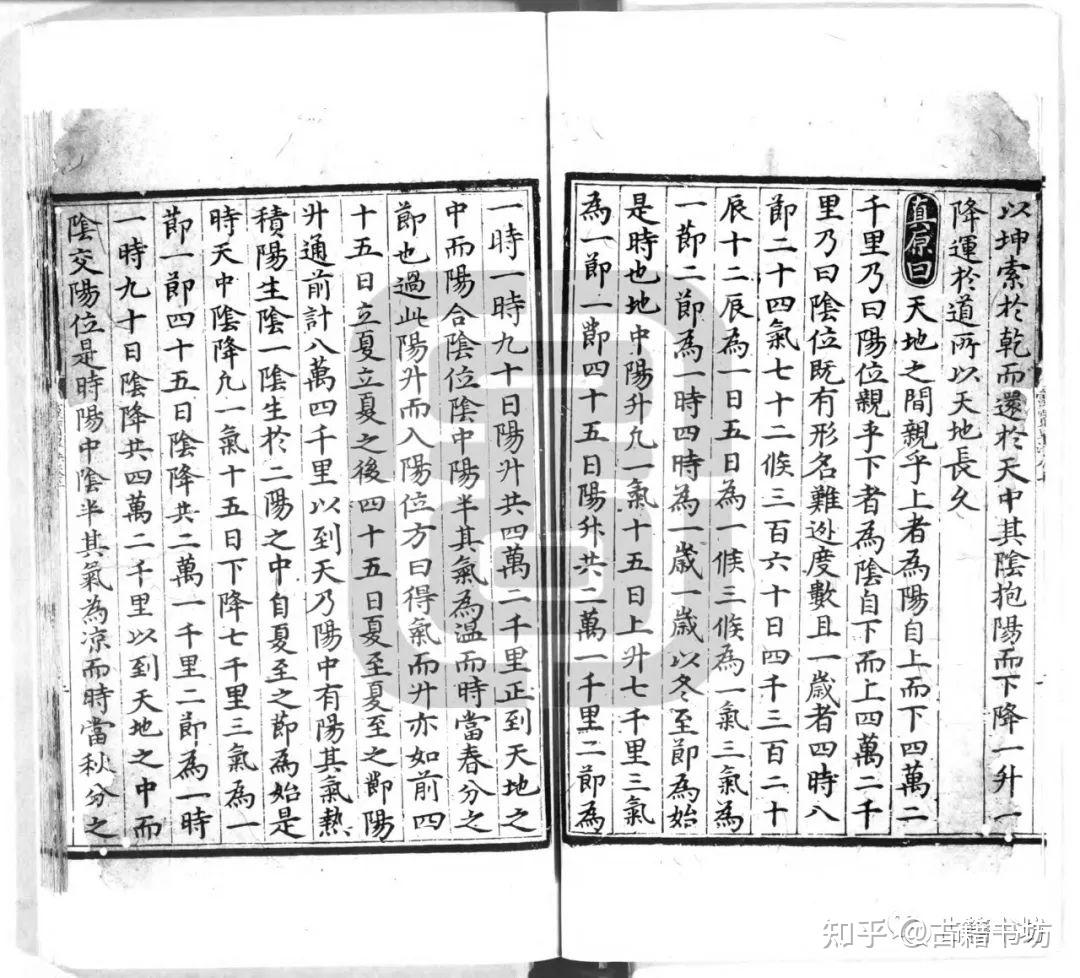 以坤索於乾而還於天中其陰抱陽而下降一升一
降運於道所以天地長久
真原曰
天地之間親乎上者為陽自上而下四萬二
千里乃曰陽位親乎下者為陰自下而上四萬二千
里乃曰陰位既有形名難逊度數且一歲者四時八
節二十四氣七十二候三百六十日四千三百二十
辰十二辰為一日五日為一候三候為一氣三氣為
一節二節為一時四時為一歲一歲以冬至節為始
是時也地中陽升凢一氣十五日上升七千里三氣
為一節一節四十五日陽升共二萬一千里二節為
一時一時九十日陽升共四萬二千里正到天地之
中而陽合陰位陰中陽半其氣為温而時當春分之
節也過此陽升而入陽位方曰得氣而升亦如前四
十五日立夏立夏之後四十五日夏至夏至之節陽
升通前計八萬四千里以到天乃陽中有陽其氣熱
積陽生陰一陰生於二陽之中自夏至之節為始是
時天中陰降凢一氣十五日下降七千里三氣為一
節一節四十五日陰降共二萬一千里二節為一時
一時九十日陰降共四萬二千里以到天地之中而
陰交陽位是時陽中陰半其氣為凉而時當秋分之
知乎 @古籍书坊